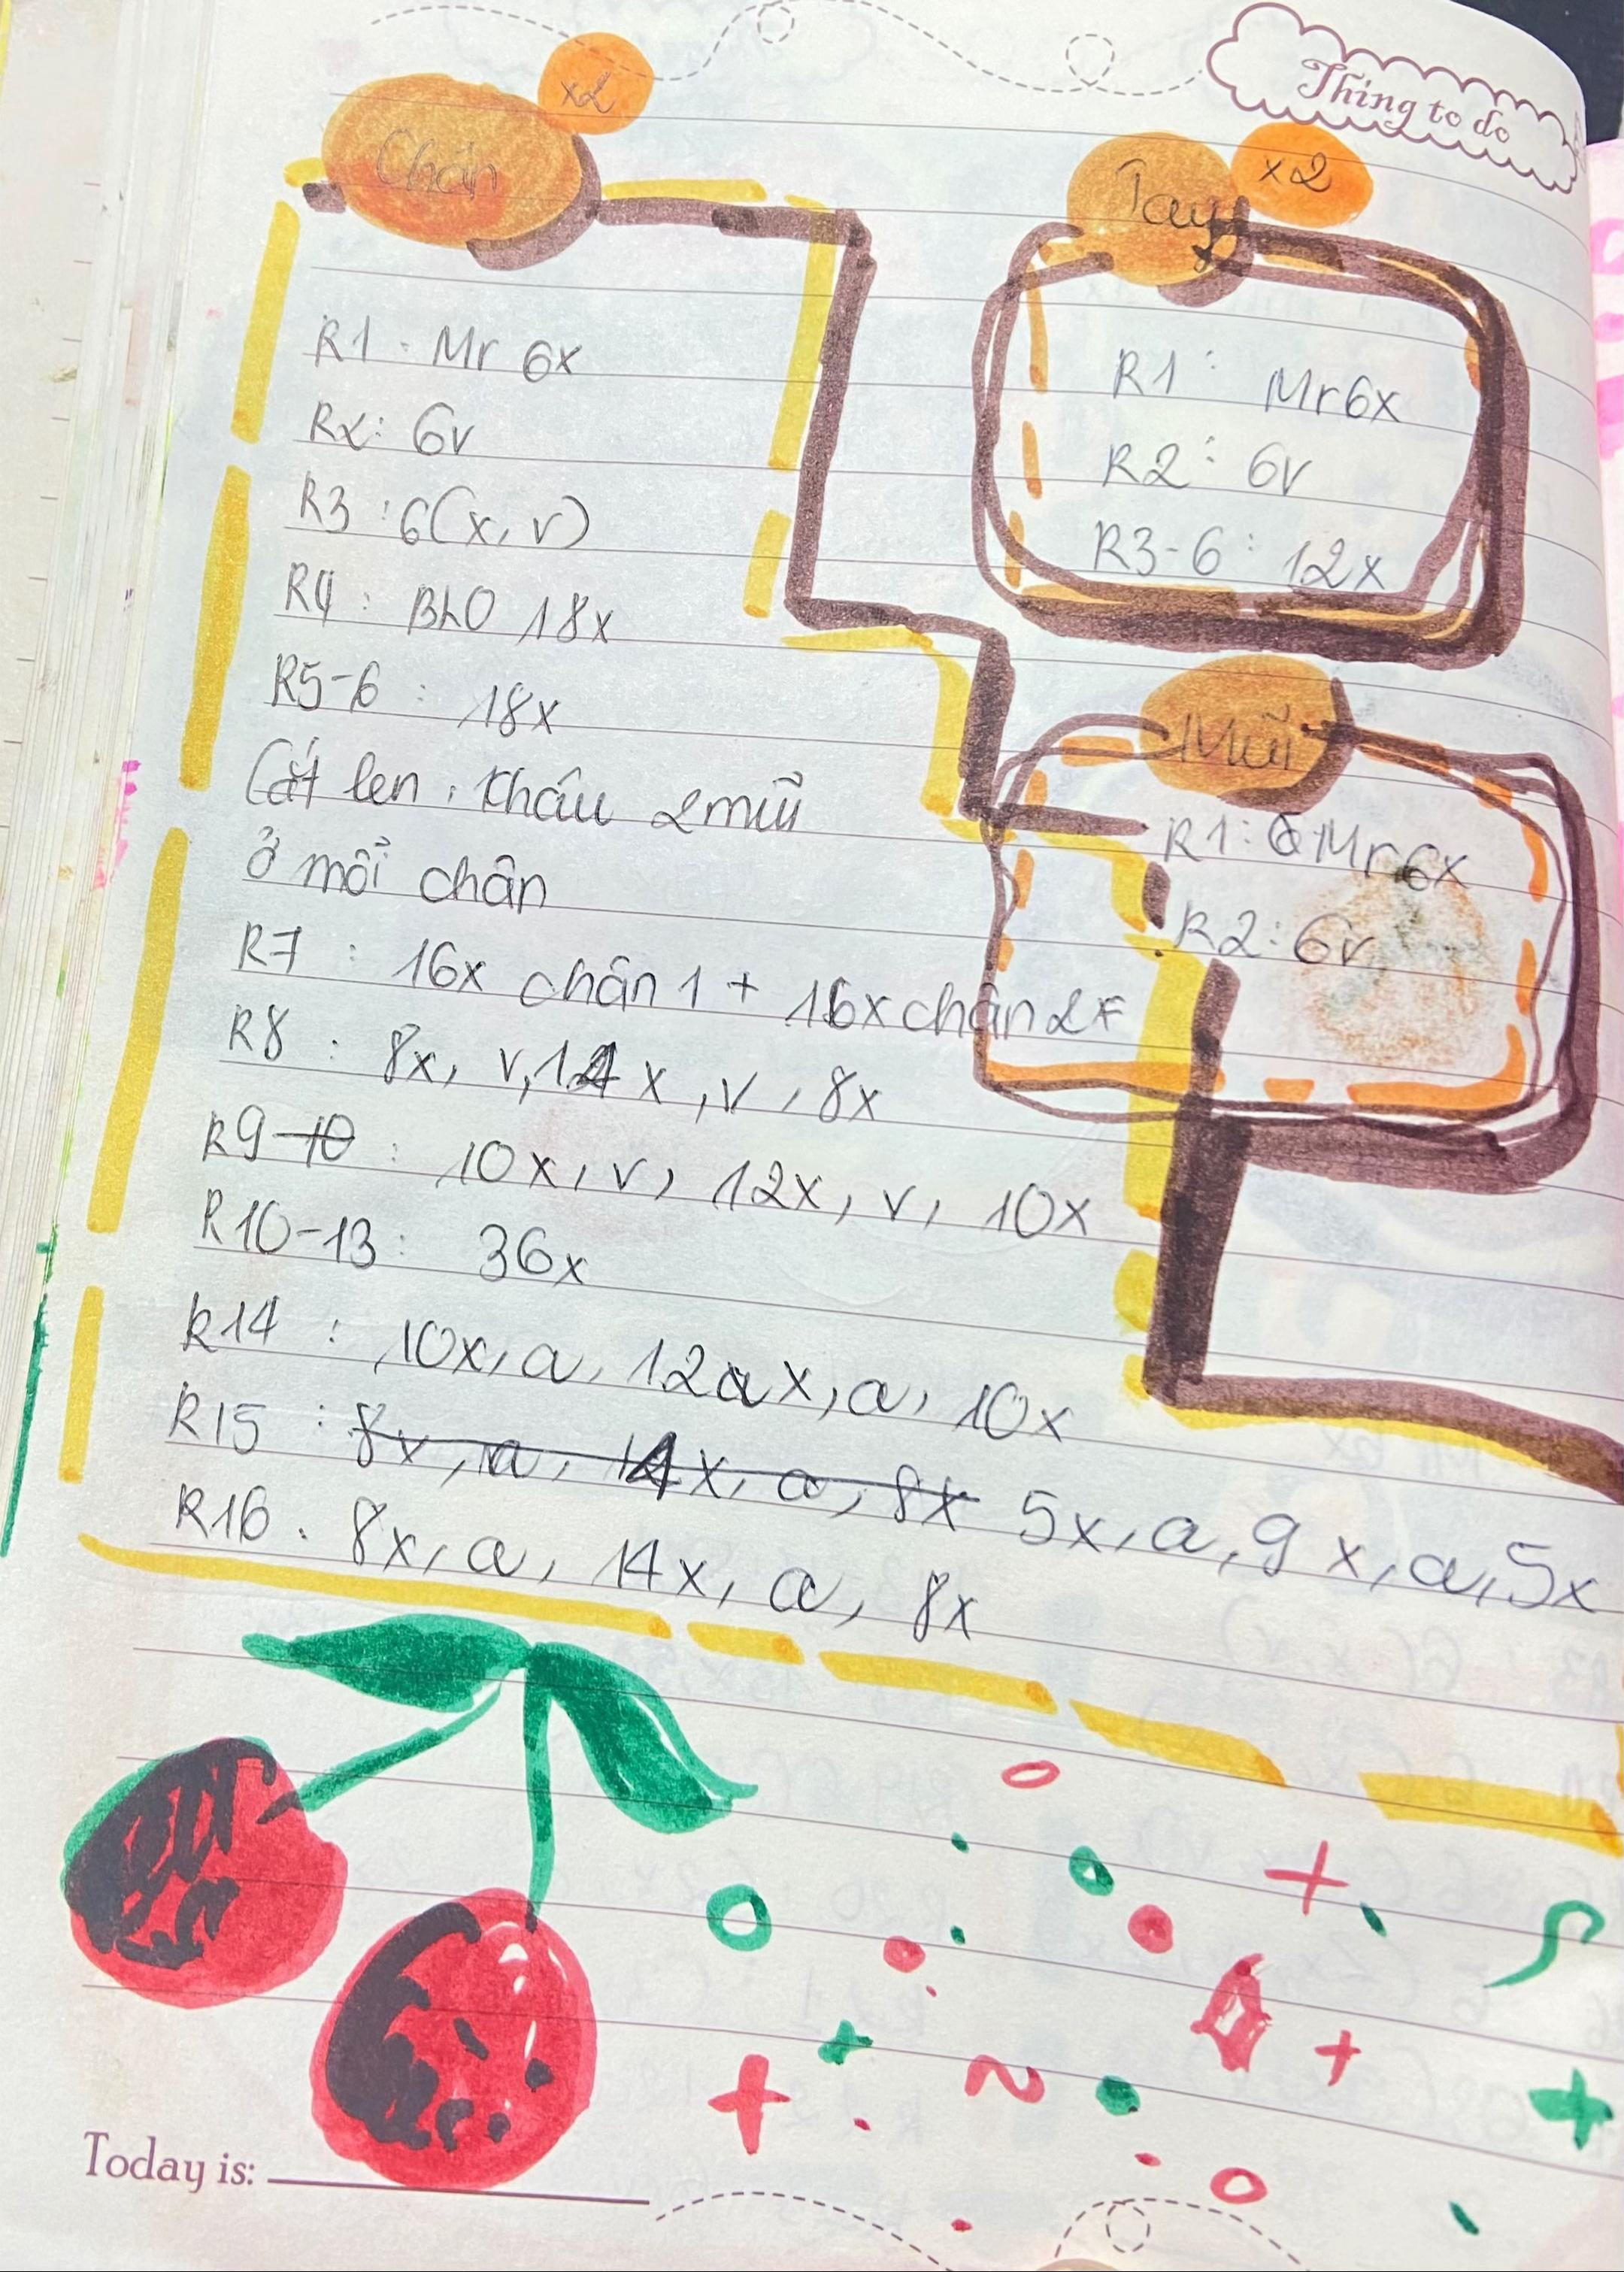 Thing to do
Chân x2
R1: Mr 6x
R2: 6v
R3: 6(x, v)
R4: BLO 18x
R5-6: 18x
Cắt len, khâu 2 mũi
ở mỗi chân
R7: 16x chân 1 + 16x chân 2
R8: 8x, v, 14x, v, 8x
R9-10: 10x, v, 12x, v, 10x
R10-13: 36x
R14: 10x, a, 12ax, a, 10x
R15: 8x, a, 14x, a, 8x 5x, a, 9x, a, 5x
R16. 8x, a, 14x, a, 8x
Tay x2
R1: Mr6x
R2: 6v
R3-6: 12x
Mũi
R1: Mr6x
R2: 6v
Today is: